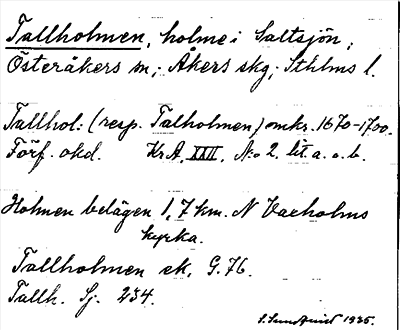 Tallholmen, holme i Saltsjön;
Österåkers sn; Åkers skg; Sthlms l.
Tallhol: (resp. Talholmen) omkr. 1670-1700.
Förf. okd. Kr.A. XXII, N:o 2. lit. a. o. b.
Holmen belägen 1,7 km. N Vaxholms
kyrka.
Tallholmen ek. G. 76.
Tallh. Sj. 234.
S. Sundquist 1935.